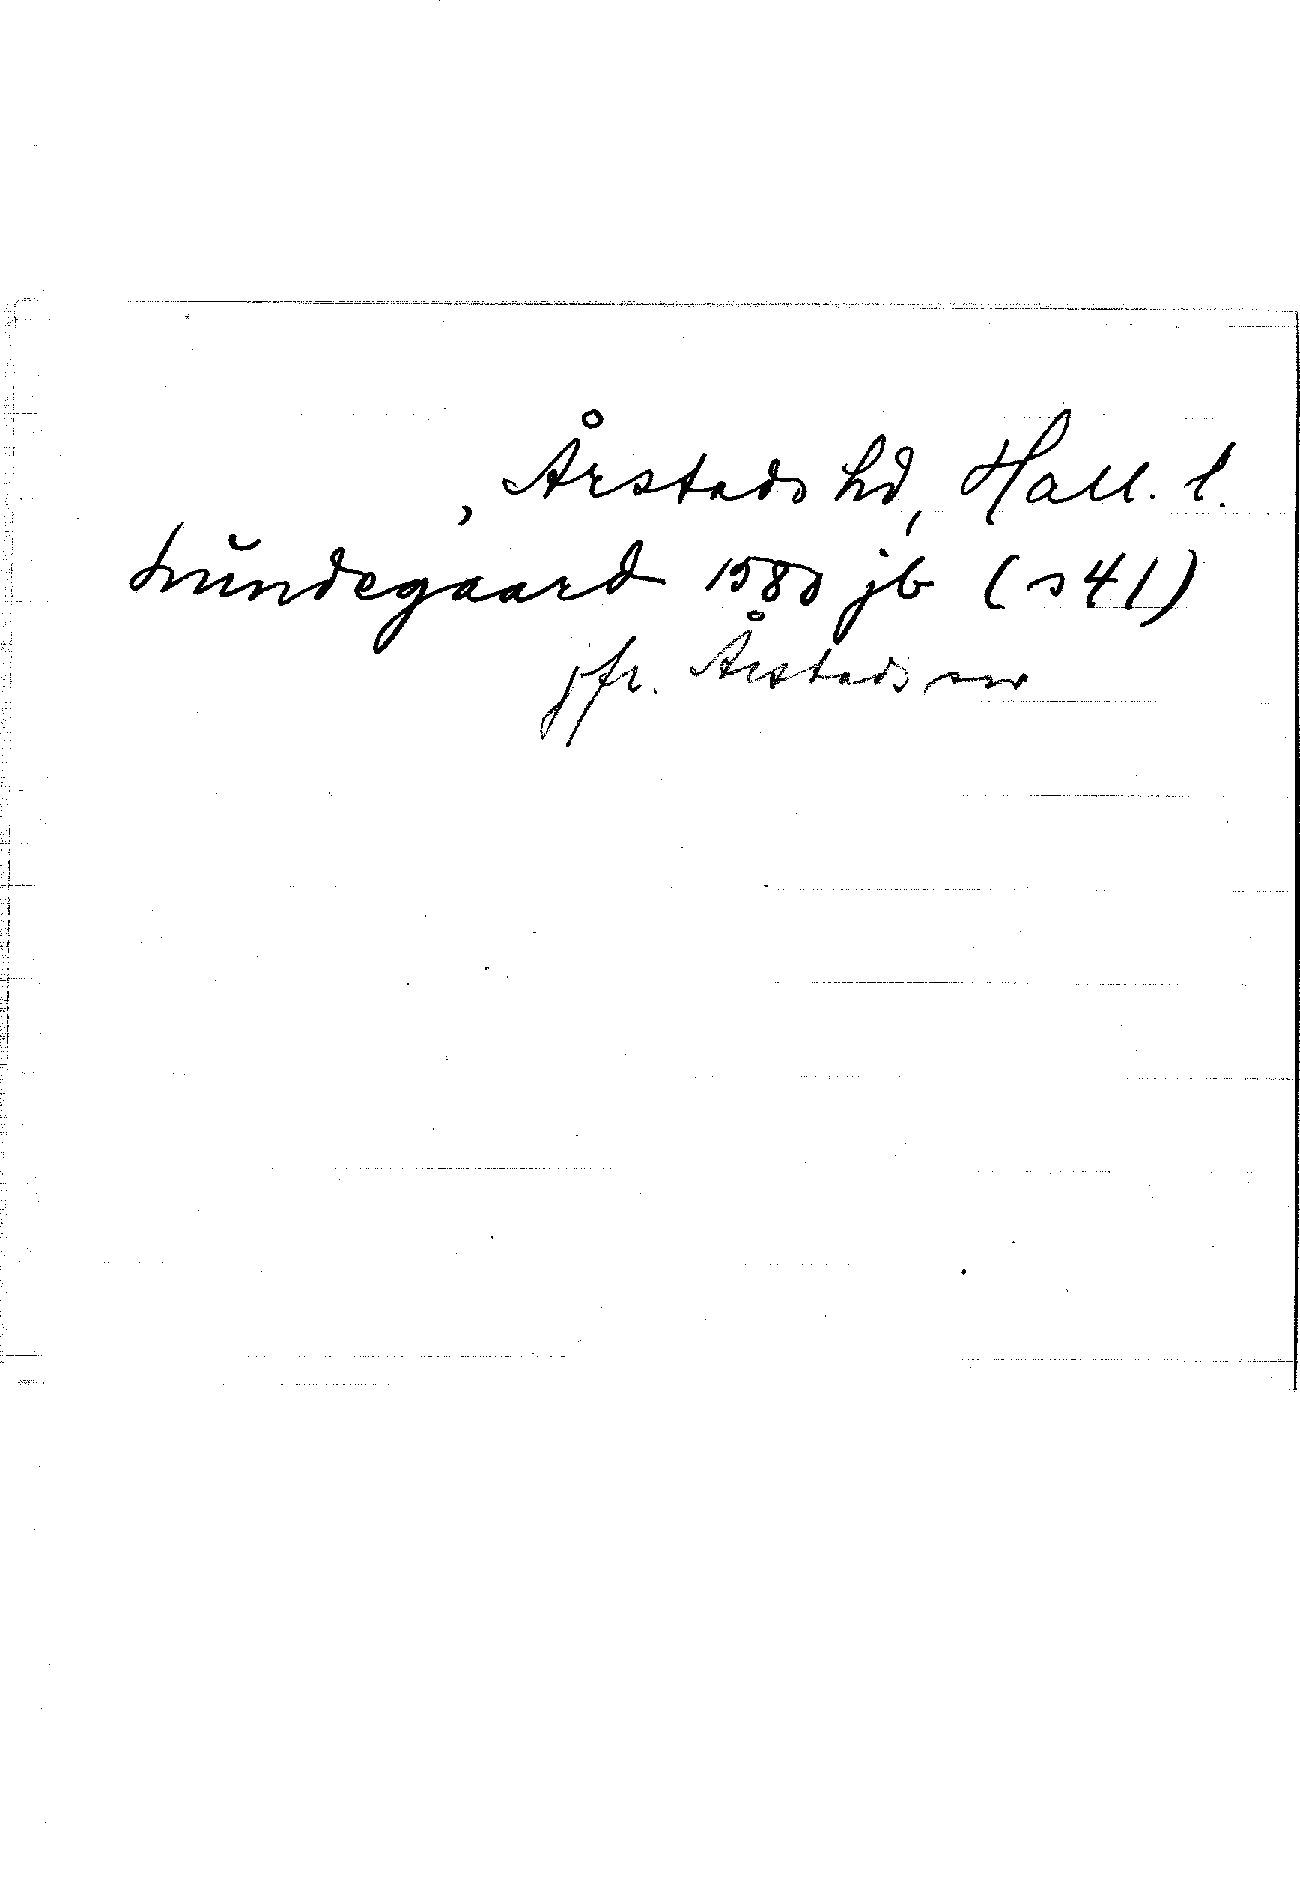 , Årstads hd, Hall. l.
Lŭndegaard 1580 jb (s 41)
jfr. Årstads